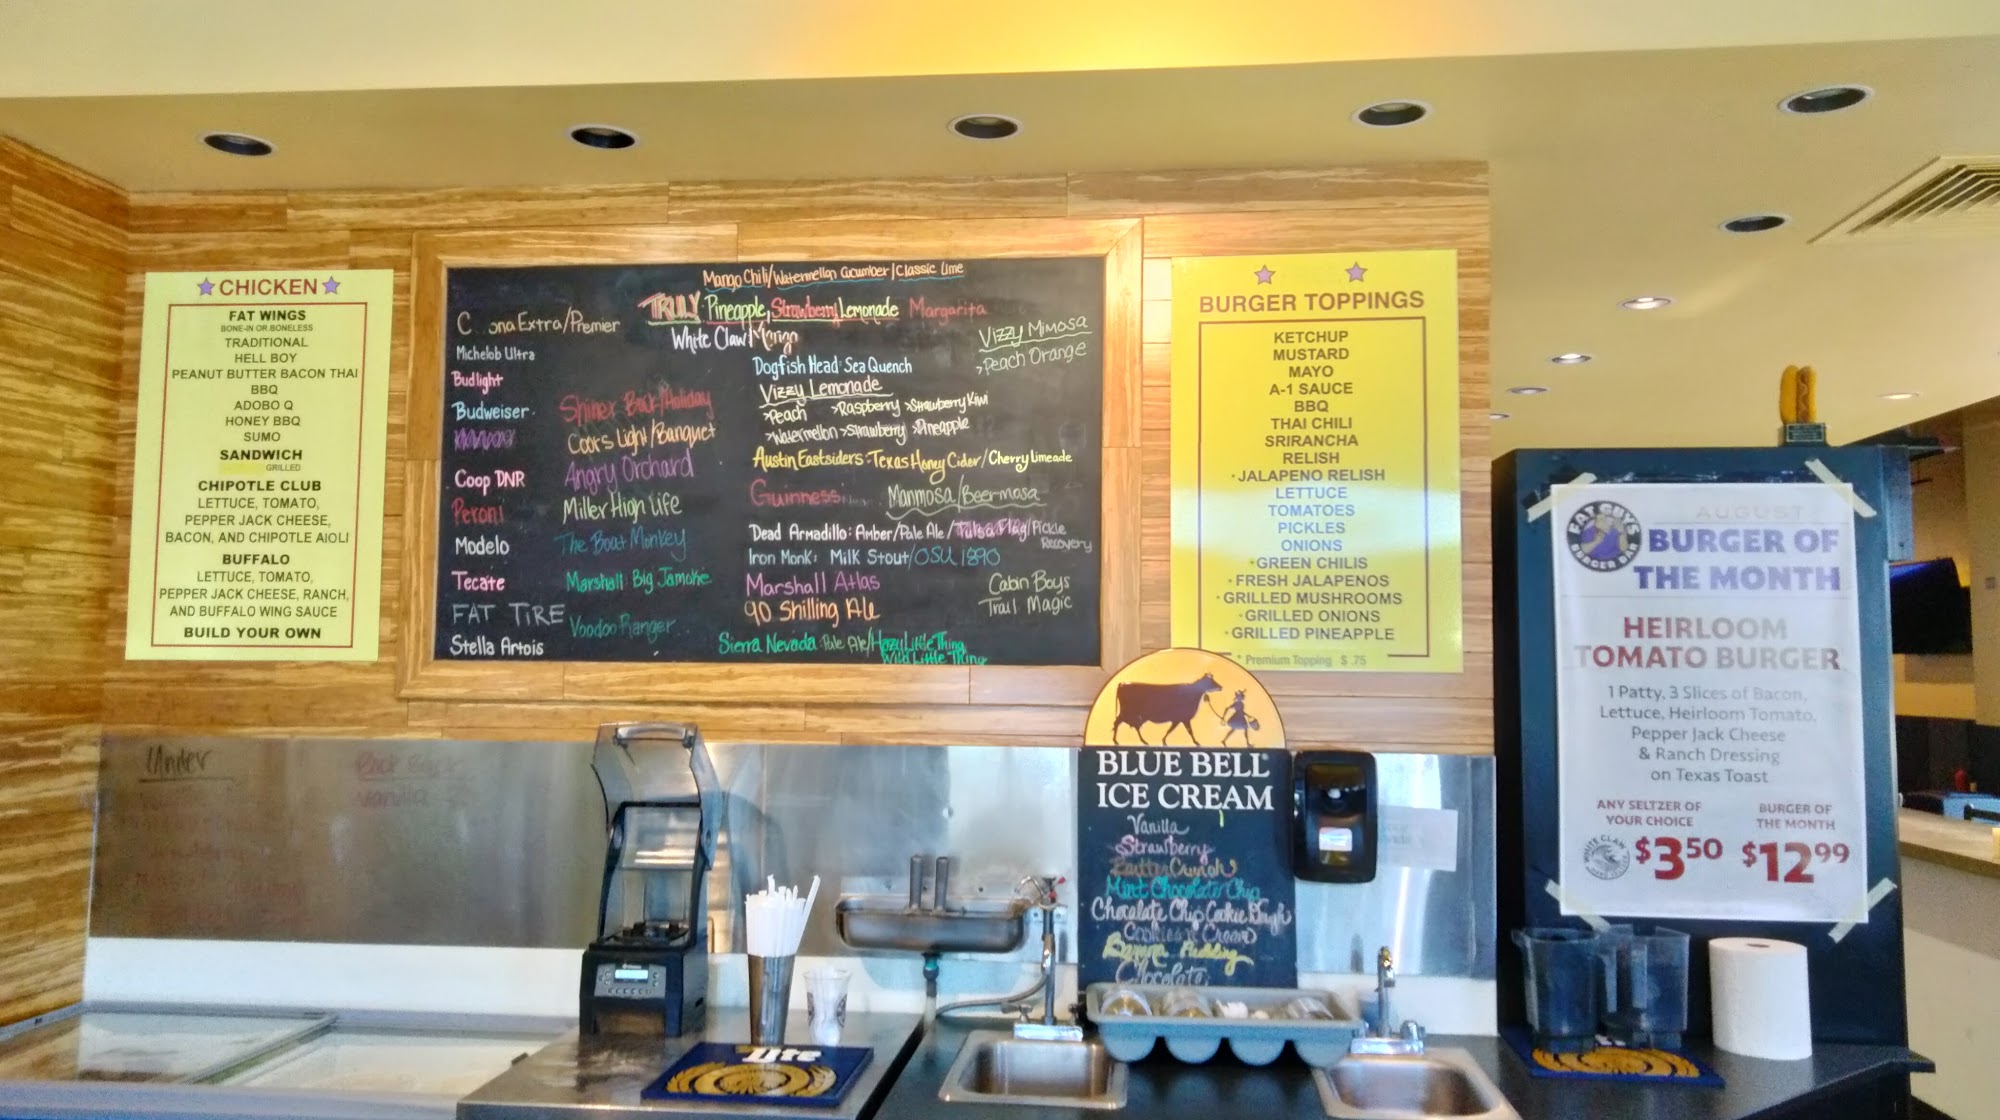 CHICKEN
FAT WINGS
BONE-IN OR BONELESS
TRADITIONAL
HELL BOY
PEANUT BUTTER BACON THAI
BBQ
ADOBO Q
HONEY BBQ
SUMO
SANDWICH
GRILLED
CHIPOTLE CLUB
LETTUCE, TOMATO,
PEPPER JACK CHEESE,
BACON, AND CHIPOTLE AIOLI
BUFFALO
LETTUCE, TOMATO,
PEPPER JACK CHEESE, RANCH,
AND BUFFALO WING SAUCE
BUILD YOUR OWN
Mango Chili/Watermellon Cucumber/Classic Lime
TRULY Pineapple, Strawberry Lemonade Margarita
White Claw/Mango
C ona Extra/Premier
Michelob Ultra
Budlight
Budweiser
Coop DNR
Peroni
Modelo
Tecate
FAT TIRE
Stella Artois
Shiner Bock/Holiday
Coors Light/Banquet
Angry Orchard
Miller High Life
The Boat Monkey
Marshall Big Jamoke
Voodoo Ranger
Vizzy Mimosa
>Peach Orange
Dogfish Head: Sea Quench
Vizzy Lemonade
>Peach >Raspberry >Strawberry Kiwi
>Watermelon >Strawberry >Pineapple
Austin Eastsiders: Texas Honey Cider/Cherry Limeade
Guinness
Manmosa/Beermosa
Dead Armadillo: Amber/Pale Ale/Tulsa Flag/Pickle
Recovery
Iron Monk: Milk Stout/OSU 1890
Marshall Atlas
90 Shilling Ale
Cabin Boys
Trail Magic
Sierra Nevada: Pale Ale/Hazy Little Thing
Wild Little Thing
BURGER TOPPINGS
KETCHUP
MUSTARD
MAYO
A-1 SAUCE
BBQ
THAI CHILI
SRIRANCHA
RELISH
·JALAPENO RELISH
LETTUCE
TOMATOES
PICKLES
ONIONS
·GREEN CHILIS
·FRESH JALAPENOS
·GRILLED MUSHROOMS
·GRILLED ONIONS
·GRILLED PINEAPPLE
* Premium Topping $ .75
Under
Vanilla
BLUE BELL®
ICE CREAM
Vanilla
Strawberry
Butter Crunch
Mint Chocolate Chip
Chocolate Chip Cookie Dough
Cookies n Cream
Banana Pudding
Chocolate
Lite
FAT GUYS
BURGER BAR
AUGUST
BURGER OF
THE MONTH
HEIRLOOM
TOMATO BURGER
1 Patty, 3 Slices of Bacon,
Lettuce, Heirloom Tomato,
Pepper Jack Cheese
& Ranch Dressing
on Texas Toast
ANY SELTZER OF
YOUR CHOICE
$3 50
WHITE CLAW
BURGER OF
THE MONTH
$12 99